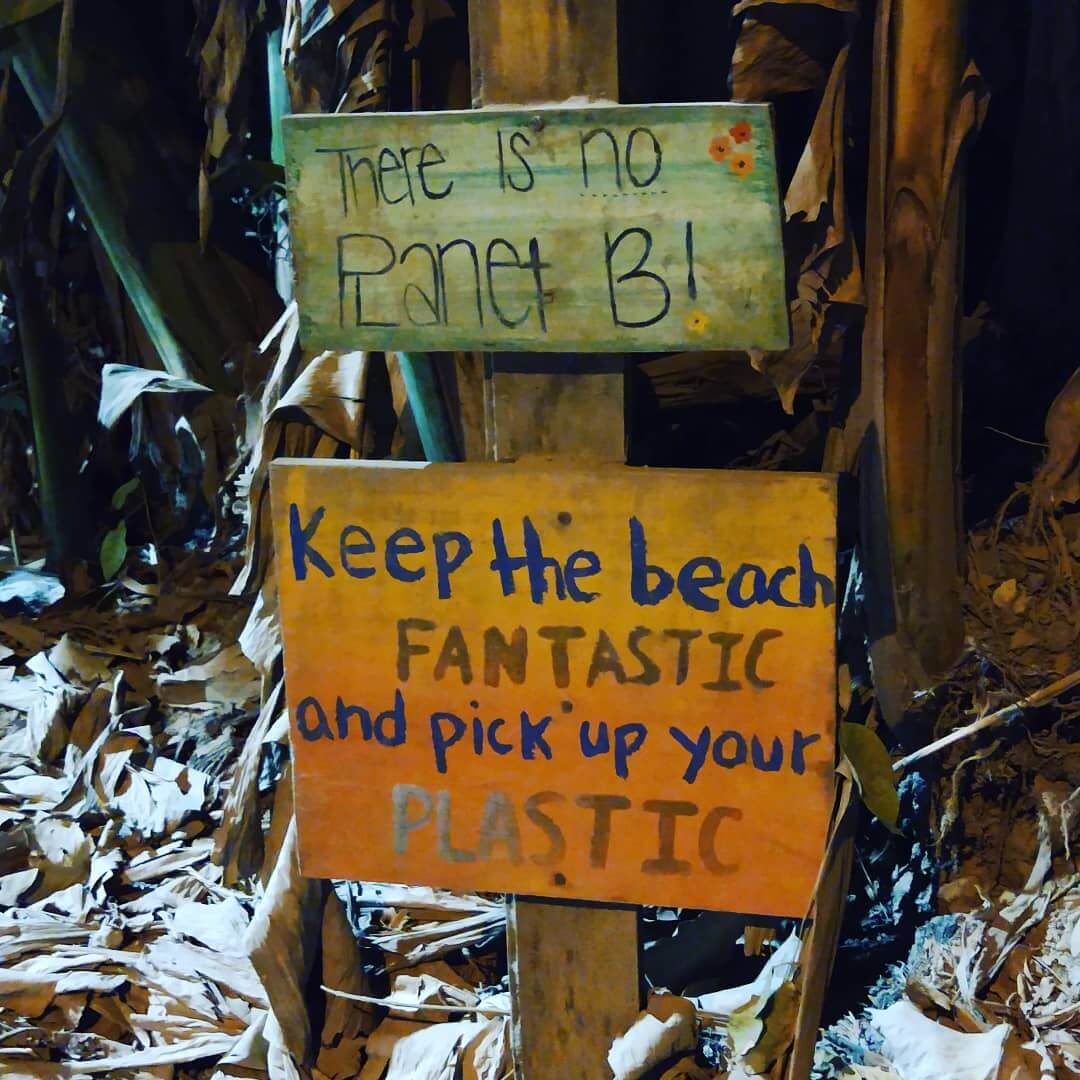 There is no
Planet B!
Keep the beach
FANTASTIC
and pick up your
PLASTIC